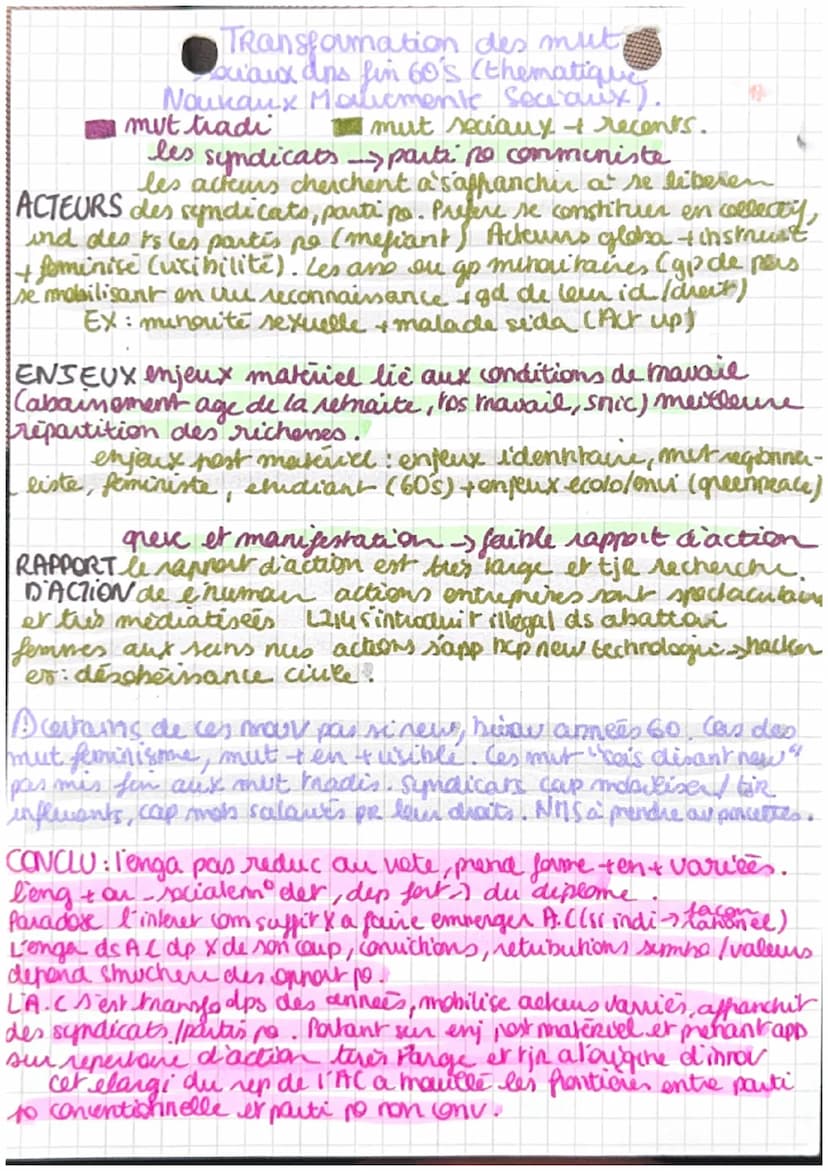 Transformation des mut
sociaux dps fin 60's (thematique
Nouveaux Mouvements Sociaux).
mvt tradi mut sociaux + recents.
les syndicats → parti po communiste
les acteurs cherchent à s'affranchir à se liberer
ACTEURS des syndicats, parti po. Prefere se constituer en collectif,
ind des ts les partis po (mefiant) Acteurs globa + instruit
+ feminisé (visibilité). Les ano ou gp minoritaires (gp de pers
se mobilisant en vue reconnaissance + gd de leur id/droit)
EX : minorité sexuelle + malade sida (Act up)
ENJEUX enjeux matériel lié aux conditions de travail
(abaissement age de la retraite, tps travail, smic) meilleure
répartition des richesses.
enjeux post matériel : enjeux identitaire, mut regionna-
liste, féministe, etudiant (60's) + enjeux ecolo/envi (greenpeace)
greve et manifestation → faible rapport d'action
RAPPORT le rapport d'action est très large et tjr recherche
D'ACTION de l'human actions entreprises sont spectaculaire
et très médiatisées L214 s'introduit illégal ds abattoir
femmes aux seins nus actions s'app bcp new technologie → hacker
ex : désobeissance civile.
certains de ces mouv pas si new, années 60. Cas des
mut feminisme, mut + en + visible. Ces mut "sois disant new"
pas mis fin aux mut tradis. Syndicats cap mobiliser / tjr
influents, cap mob salariés pr leur droits. NMS à prendre au pincettes.
CONCLU : l'enga pas reduc au vote, prend forme + en + variées.
l'eng + ou - socialem° det, dep fort → du diplome.
Paradoxe l'interet com suffit X a faire emmerger A.C (ss indi → façon
rationnel)
L'enga ds AC dp X de son coup, convictions, retributions symbo / valeurs
depend structure des opport po.
L'A.C s'est transfo dps des années, mobilise acteurs variés, affranchit
des syndicats / partis po. Portant sur enj post matériel et prenant app
sur repertoire d'action très large et tjr a l'origine d'innov
cet elargi du rep de l'AC a mouillé les frontières entre parti
po conventionnelle et parti po non conv.